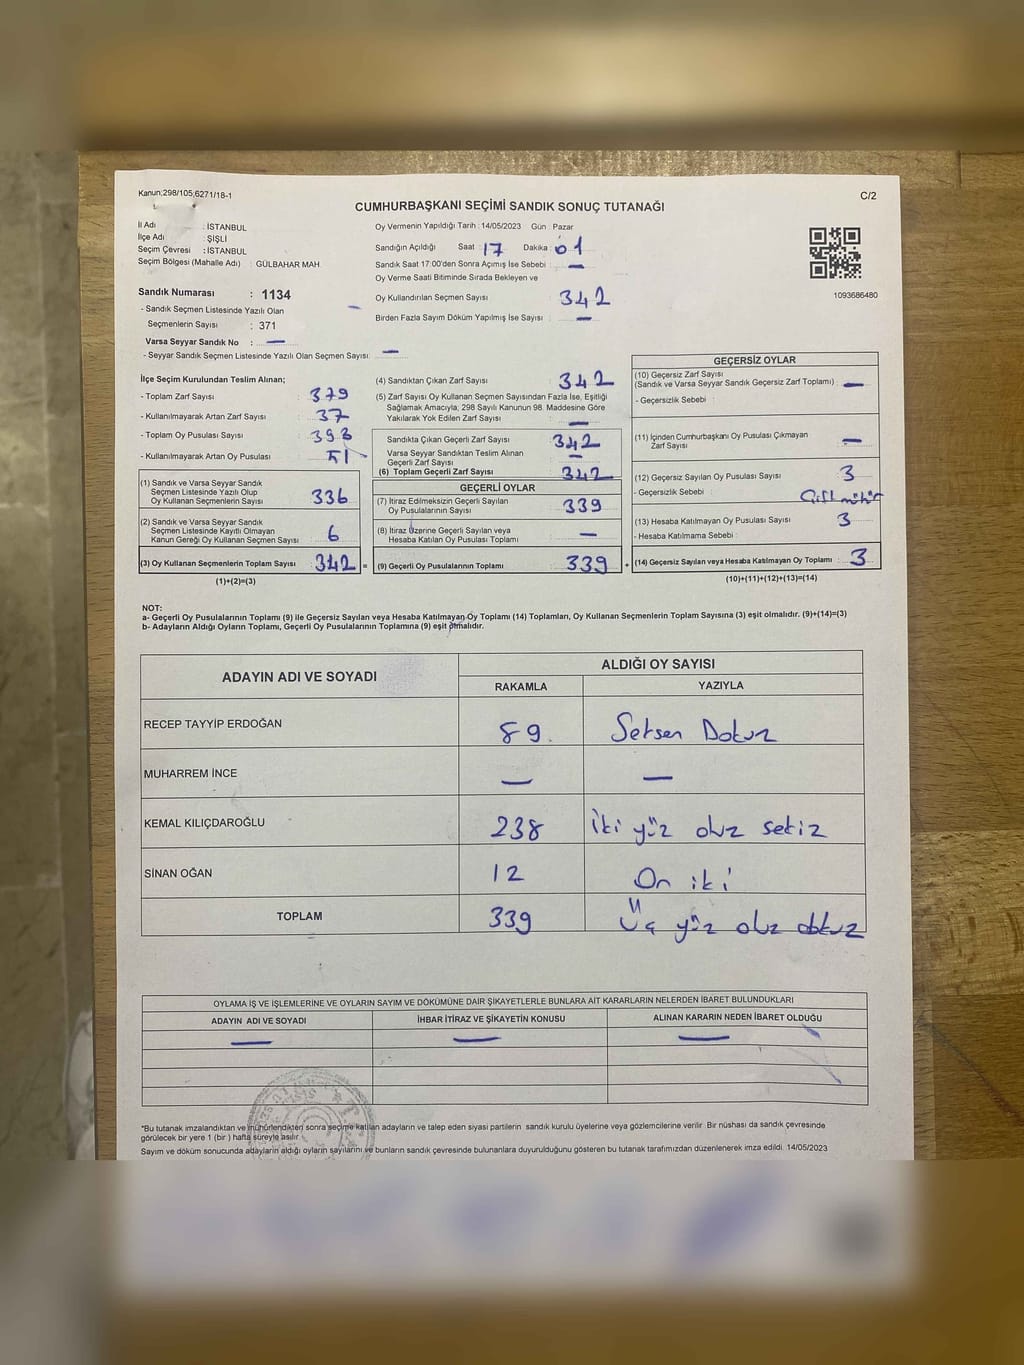 Kanun;298/105;6271/18-1
C/2
CUMHURBAŞKANI SEÇİMİ SANDIK SONUÇ TUTANAĞI
İl Adı : İSTANBUL
İlçe Adı : ŞİŞLİ
Seçim Çevresi : İSTANBUL
Seçim Bölgesi (Mahalle Adı) : GÜLBAHAR MAH
Sandık Numarası : 1134
- Sandık Seçmen Listesinde Yazılı Olan —
Seçmenlerin Sayısı : 371
Varsa Seyyar Sandık No : —
- Seyyar Sandık Seçmen Listesinde Yazılı Olan Seçmen Sayısı : —
Oy Vermenin Yapıldığı Tarih : 14/05/2023 Gün : Pazar
Sandığın Açıldığı Saat : 17 Dakika : 01
Sandık Saat 17:00'den Sonra Açımış İse Sebebi : —
Oy Verme Saati Bitiminde Sırada Bekleyen ve
Oy Kullandırılan Seçmen Sayısı : 342
Birden Fazla Sayım Döküm Yapılmış İse Sayısı : —
1093686480
İlçe Seçim Kurulundan Teslim Alınan;
- Toplam Zarf Sayısı : 379
- Kullanılmayarak Artan Zarf Sayısı : 37
- Toplam Oy Pusulası Sayısı : 393
- Kullanılmayarak Artan Oy Pusulası : 51
(1) Sandık ve Varsa Seyyar Sandık
Seçmen Listesinde Yazılı Olup
Oy Kullanan Seçmenlerin Sayısı : 336
(2) Sandık ve Varsa Seyyar Sandık
Seçmen Listesinde Kayıtlı Olmayan
Kanun Gereği Oy Kullanan Seçmen Sayısı : 6
(3) Oy Kullanan Seçmenlerin Toplam Sayısı : 342 =
(1)+(2)=(3)
(4) Sandıktan Çıkan Zarf Sayısı : 342
(5) Zarf Sayısı Oy Kullanan Seçmen Sayısından Fazla İse, Eşitliği
Sağlamak Amacıyla; 298 Sayılı Kanunun 98. Maddesine Göre
Yakılarak Yok Edilen Zarf Sayısı : —
Sandıkta Çıkan Geçerli Zarf Sayısı : 342
Varsa Seyyar Sandıktan Teslim Alınan
Geçerli Zarf Sayısı : —
(6) Toplam Geçerli Zarf Sayısı : 342
GEÇERLİ OYLAR
(7) İtiraz Edilmeksizin Geçerli Sayılan
Oy Pusulalarının Sayısı : 339
(8) İtiraz Üzerine Geçerli Sayılan veya
Hesaba Katılan Oy Pusulası Toplamı : —
(9) Geçerli Oy Pusulalarının Toplamı : 339 +
GEÇERSİZ OYLAR
(10) Geçersiz Zarf Sayısı
(Sandık ve Varsa Seyyar Sandık Geçersiz Zarf Toplamı) : —
- Geçersizlik Sebebi :
(11) İçinden Cumhurbaşkanı Oy Pusulası Çıkmayan
Zarf Sayısı : —
(12) Geçersiz Sayılan Oy Pusulası Sayısı : 3
- Geçersizlik Sebebi : Çift mühür
(13) Hesaba Katılmayan Oy Pusulası Sayısı : 3
- Hesaba Katılmama Sebebi :
(14) Geçersiz Sayılan veya Hesaba Katılmayan Oy Toplamı : 3
(10)+(11)+(12)+(13)=(14)
NOT:
a- Geçerli Oy Pusulalarının Toplamı (9) ile Geçersiz Sayılan veya Hesaba Katılmayan Oy Toplamı (14) Toplamları, Oy Kullanan Seçmenlerin Toplam Sayısına (3) eşit olmalıdır. (9)+(14)=(3)
b- Adayların Aldığı Oyların Toplamı, Geçerli Oy Pusulalarının Toplamına (9) eşit olmalıdır.
ADAYIN ADI VE SOYADI ALDIĞI OY SAYISI
RAKAMLA YAZIYLA
RECEP TAYYİP ERDOĞAN 89 Seksen Dokuz
MUHARREM İNCE — —
KEMAL KILIÇDAROĞLU 238 İki yüz otuz sekiz
SİNAN OĞAN 12 On iki
TOPLAM 339 Üç yüz otuz dokuz
OYLAMA İŞ VE İŞLEMLERİNE VE OYLARIN SAYIM VE DÖKÜMÜNE DAİR ŞİKAYETLERLE BUNLARA AİT KARARLARIN NELERDEN İBARET BULUNDUKLARI
ADAYIN ADI VE SOYADI İHBAR İTİRAZ VE ŞİKAYETİN KONUSU ALINAN KARARIN NEDEN İBARET OLDUĞU
— — —
*Bu tutanak imzalandıktan ve mühürlendikten sonra seçime katılan adayların ve talep eden siyasi partilerin sandık kurulu üyelerine veya gözlemcilerine verilir. Bir nüshası da sandık çevresinde
görülecek bir yere 1 (bir ) hafta süreyle asılır.
Sayım ve döküm sonucunda adayların aldığı oyların sayılarını ve bunların sandık çevresinde bulunanlara duyurulduğunu gösteren bu tutanak tarafımızdan düzenlenerek imza edildi. 14/05/2023